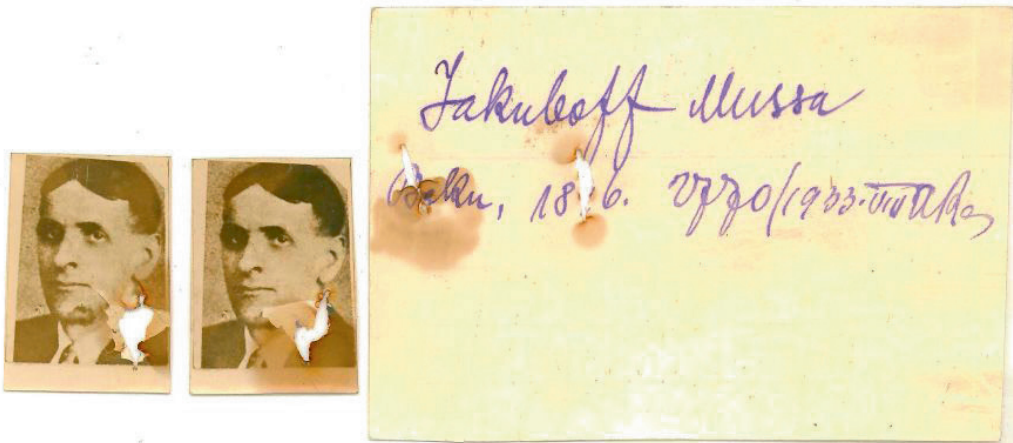 Jakuboff Mussa
Baku, 18 6. 7770/1933-VIII